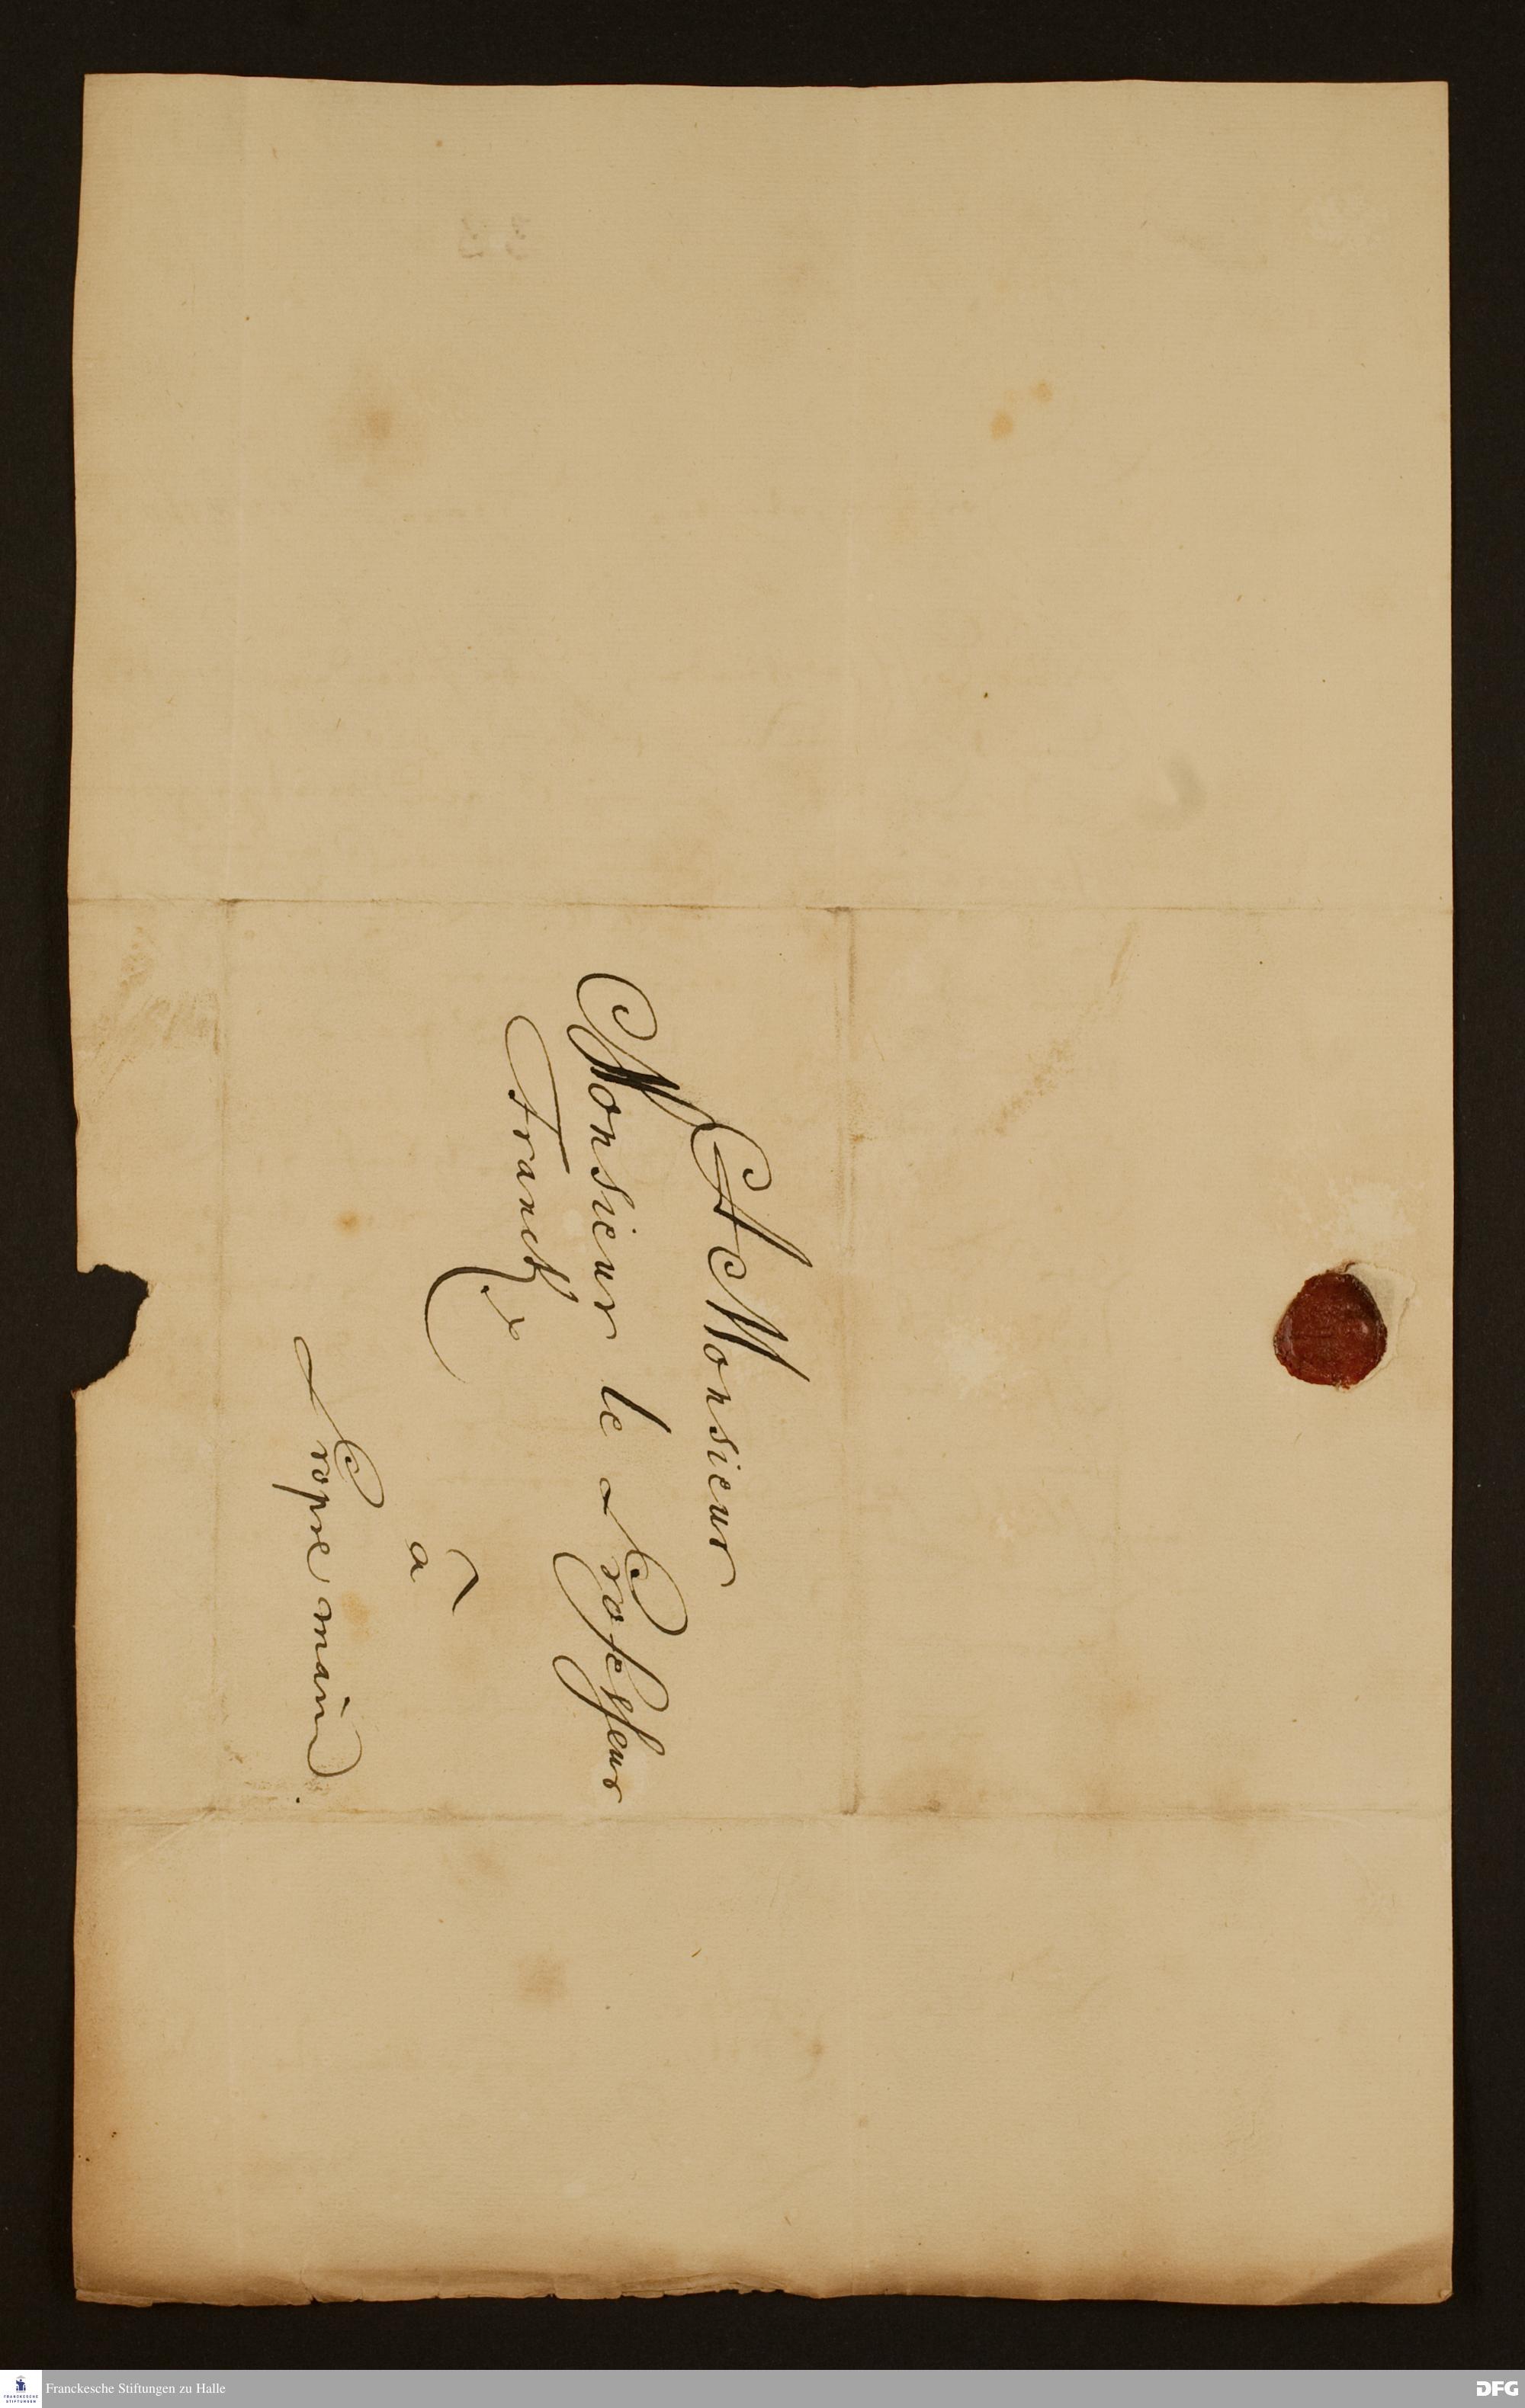 A Monsieur
Monsieur le Professeur
Franck.
â
Propre main.
Franckesche Stiftungen zu Halle
FRANCKESCHE
STIFTUNGEN
DFG